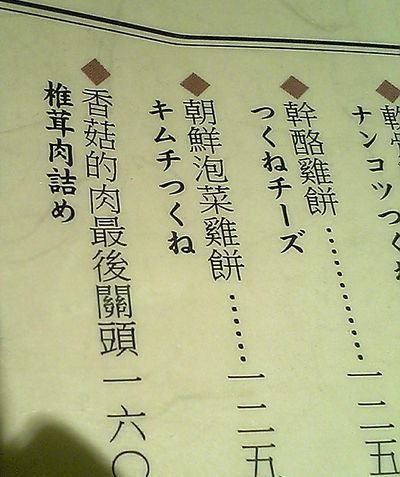 ナンコツつくね
幹酪雞餅…………一二五
つくねチーズ
朝鮮泡菜雞餅……一二五
キムチつくね
香菇的肉最後關頭一六〇
椎茸肉詰め